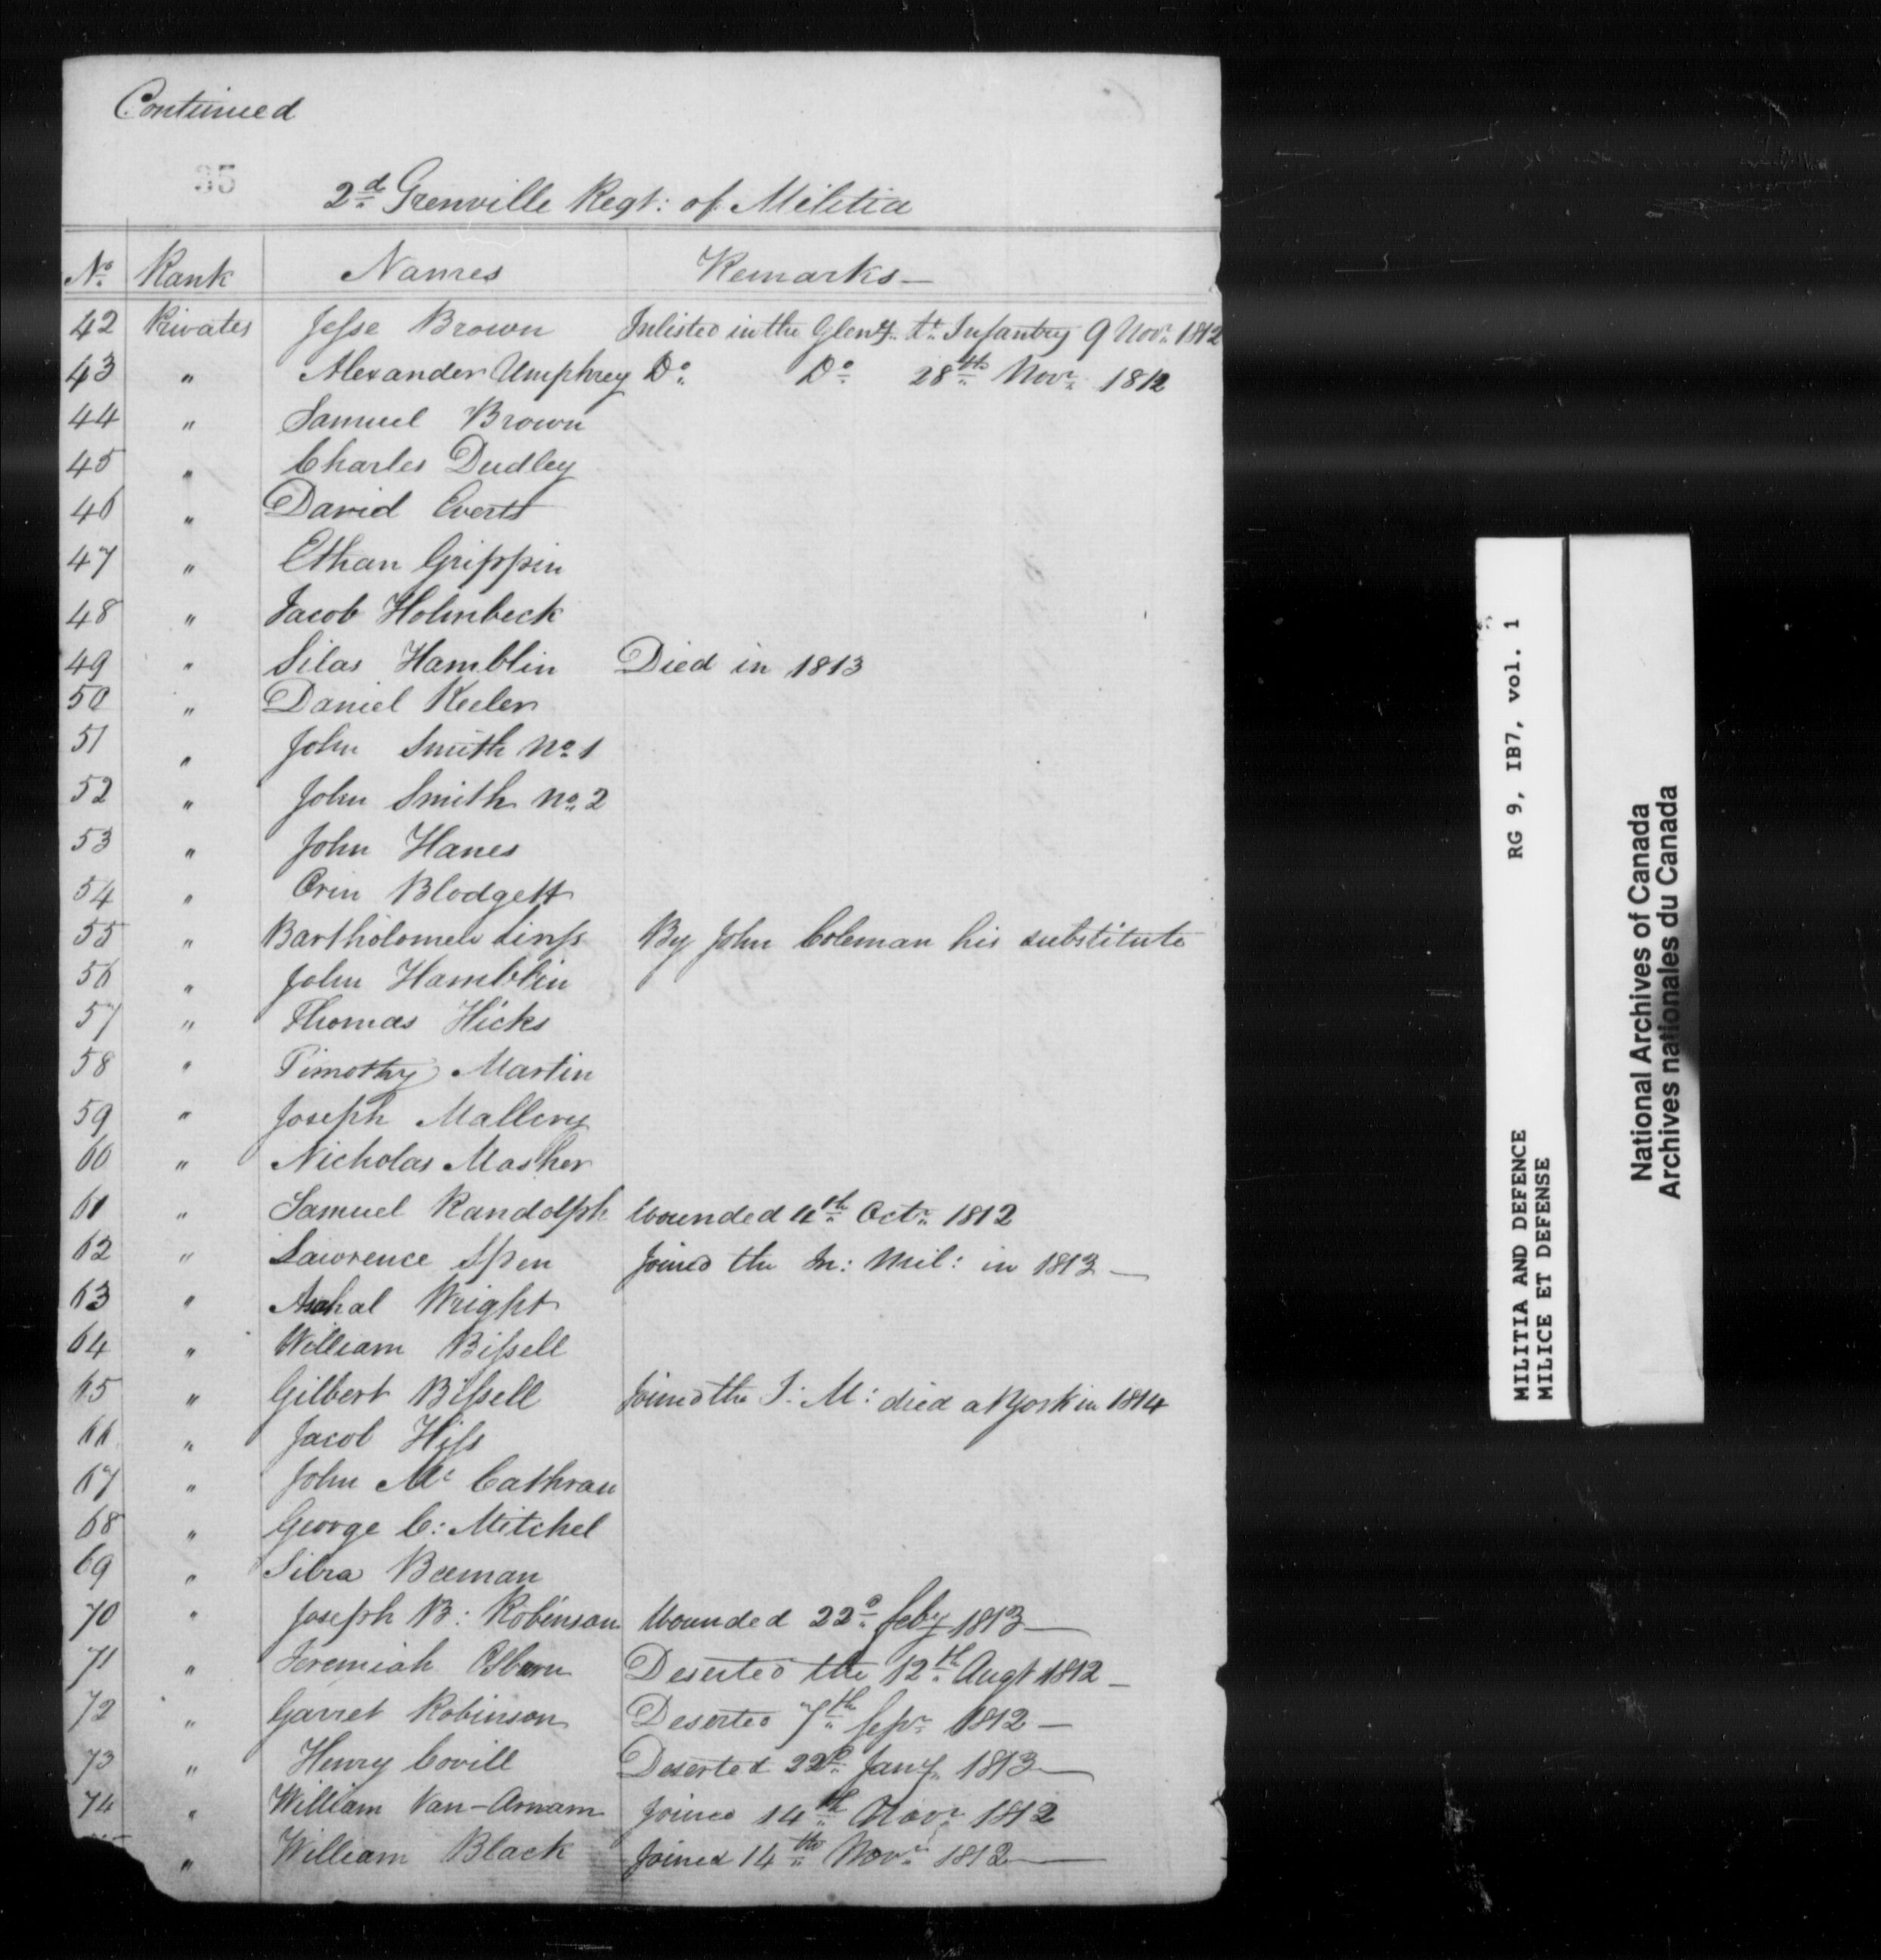 Continued
35
2d Grenville Regt: of Militia
No Rank Names Remarks—
42 Privates Jesse Brown Inlisted in the Gleny. Lt. Infantry 9 Novr. 1812
43 " Alexander Umphrey Do. Do. 28th Novr. 1812
44 " Samuel Brown
45 " Charles Dudley
46 " David Everts
47 " Ethan Grippin
48 " Jacob Holmbeck
49 " Silas Hamblin Died in 1813
50 " Daniel Keeler
51 " John Smith No. 1
52 " John Smith No. 2
53 " John Hanes
54 " Orin Blodgett
55 " Bartholomew By John Coleman his substitute
56 " John Hamblin
57 " Thomas Hicks
58 " Timothy Martin
59 " Joseph Mallery
60 " Nicholas Mosher
61 " Samuel Randolph Wounded 4th Octr. 1812
62 " Lawrence Joined the In: Mil: in 1813—
63 " Wright
64 " William Bissell
65 " Gilbert Bissell Joined the I: M: died at York in 1814
66 " Jacob Hiss
67 " John Mc Cathran
68 " George C: Mitchel
69 " Beeman
70 " Joseph B: Robinson Wounded 22d. feby 1813—
71 " Jeremiah Osborn Deserted the 12th Augt 1812—
72 " Garret Robinson Deserted 7th Sepr. 1812—
73 " Henry Covill Deserted 22d. Jany. 1813—
74 " William Van-Arnam Joined 14th Novr. 1812
" William Black Joined 14th Novr. 1812—
MILITIA AND DEFENCE RG 9, IB7, vol. 1
MILICE ET DEFENSE
National Archives of Canada
Archives nationales du Canada